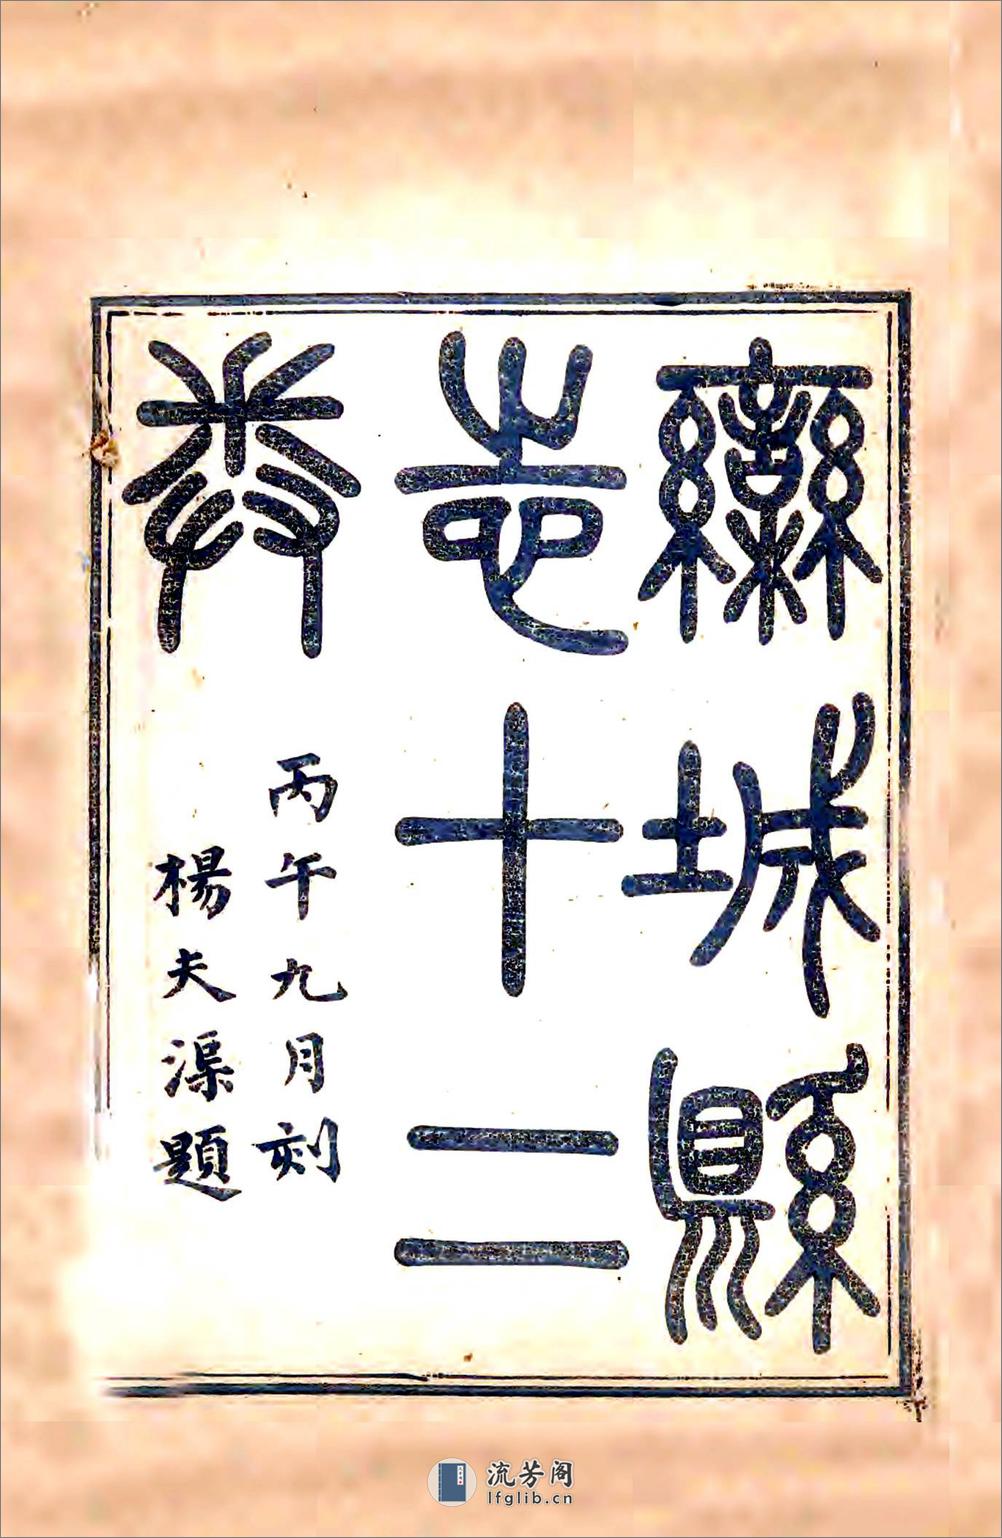 欒城縣
志十二
卷
丙午九月刻
楊夫渠題
流芳阁
lfglib.cn